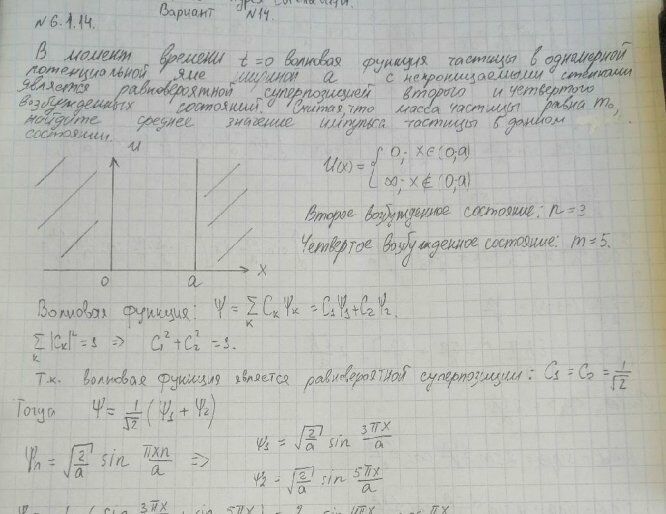 Вариант №14.
№6.1.14.
В момент времени t=0 волновая функция частицы в одномерной
потенциальной яме шириной a с непроницаемыми стенками
является равновероятной суперпозицией второго и четвертого
возбужденных состояний. Считая, что масса частицы равна m₀,
найдите среднее значение импульса частицы в данном
состоянии.
U
U(x) = { 0; x∈(0,a)
∞; x∉(0,a)
Второе возбужденное состояние: n=3
Четвертое возбужденное состояние: m=5.
0 a x
Волновая функция: Ψ = Σ_k C_k Ψ_k = C₁Ψ₁+C₂Ψ₂.
Σ_k |C_k|²=1 => C₁²+C₂²=1.
Т.к. волновая функция является равновероятной суперпозиции: C₁ = C₂ = 1/√2
Тогда Ψ = 1/√2 (Ψ₁ + Ψ₂)
Ψn = √(2/a) sin πxn/a => Ψ₁ = √(2/a) sin 3πx/a
Ψ₂ = √(2/a) sin 5πx/a